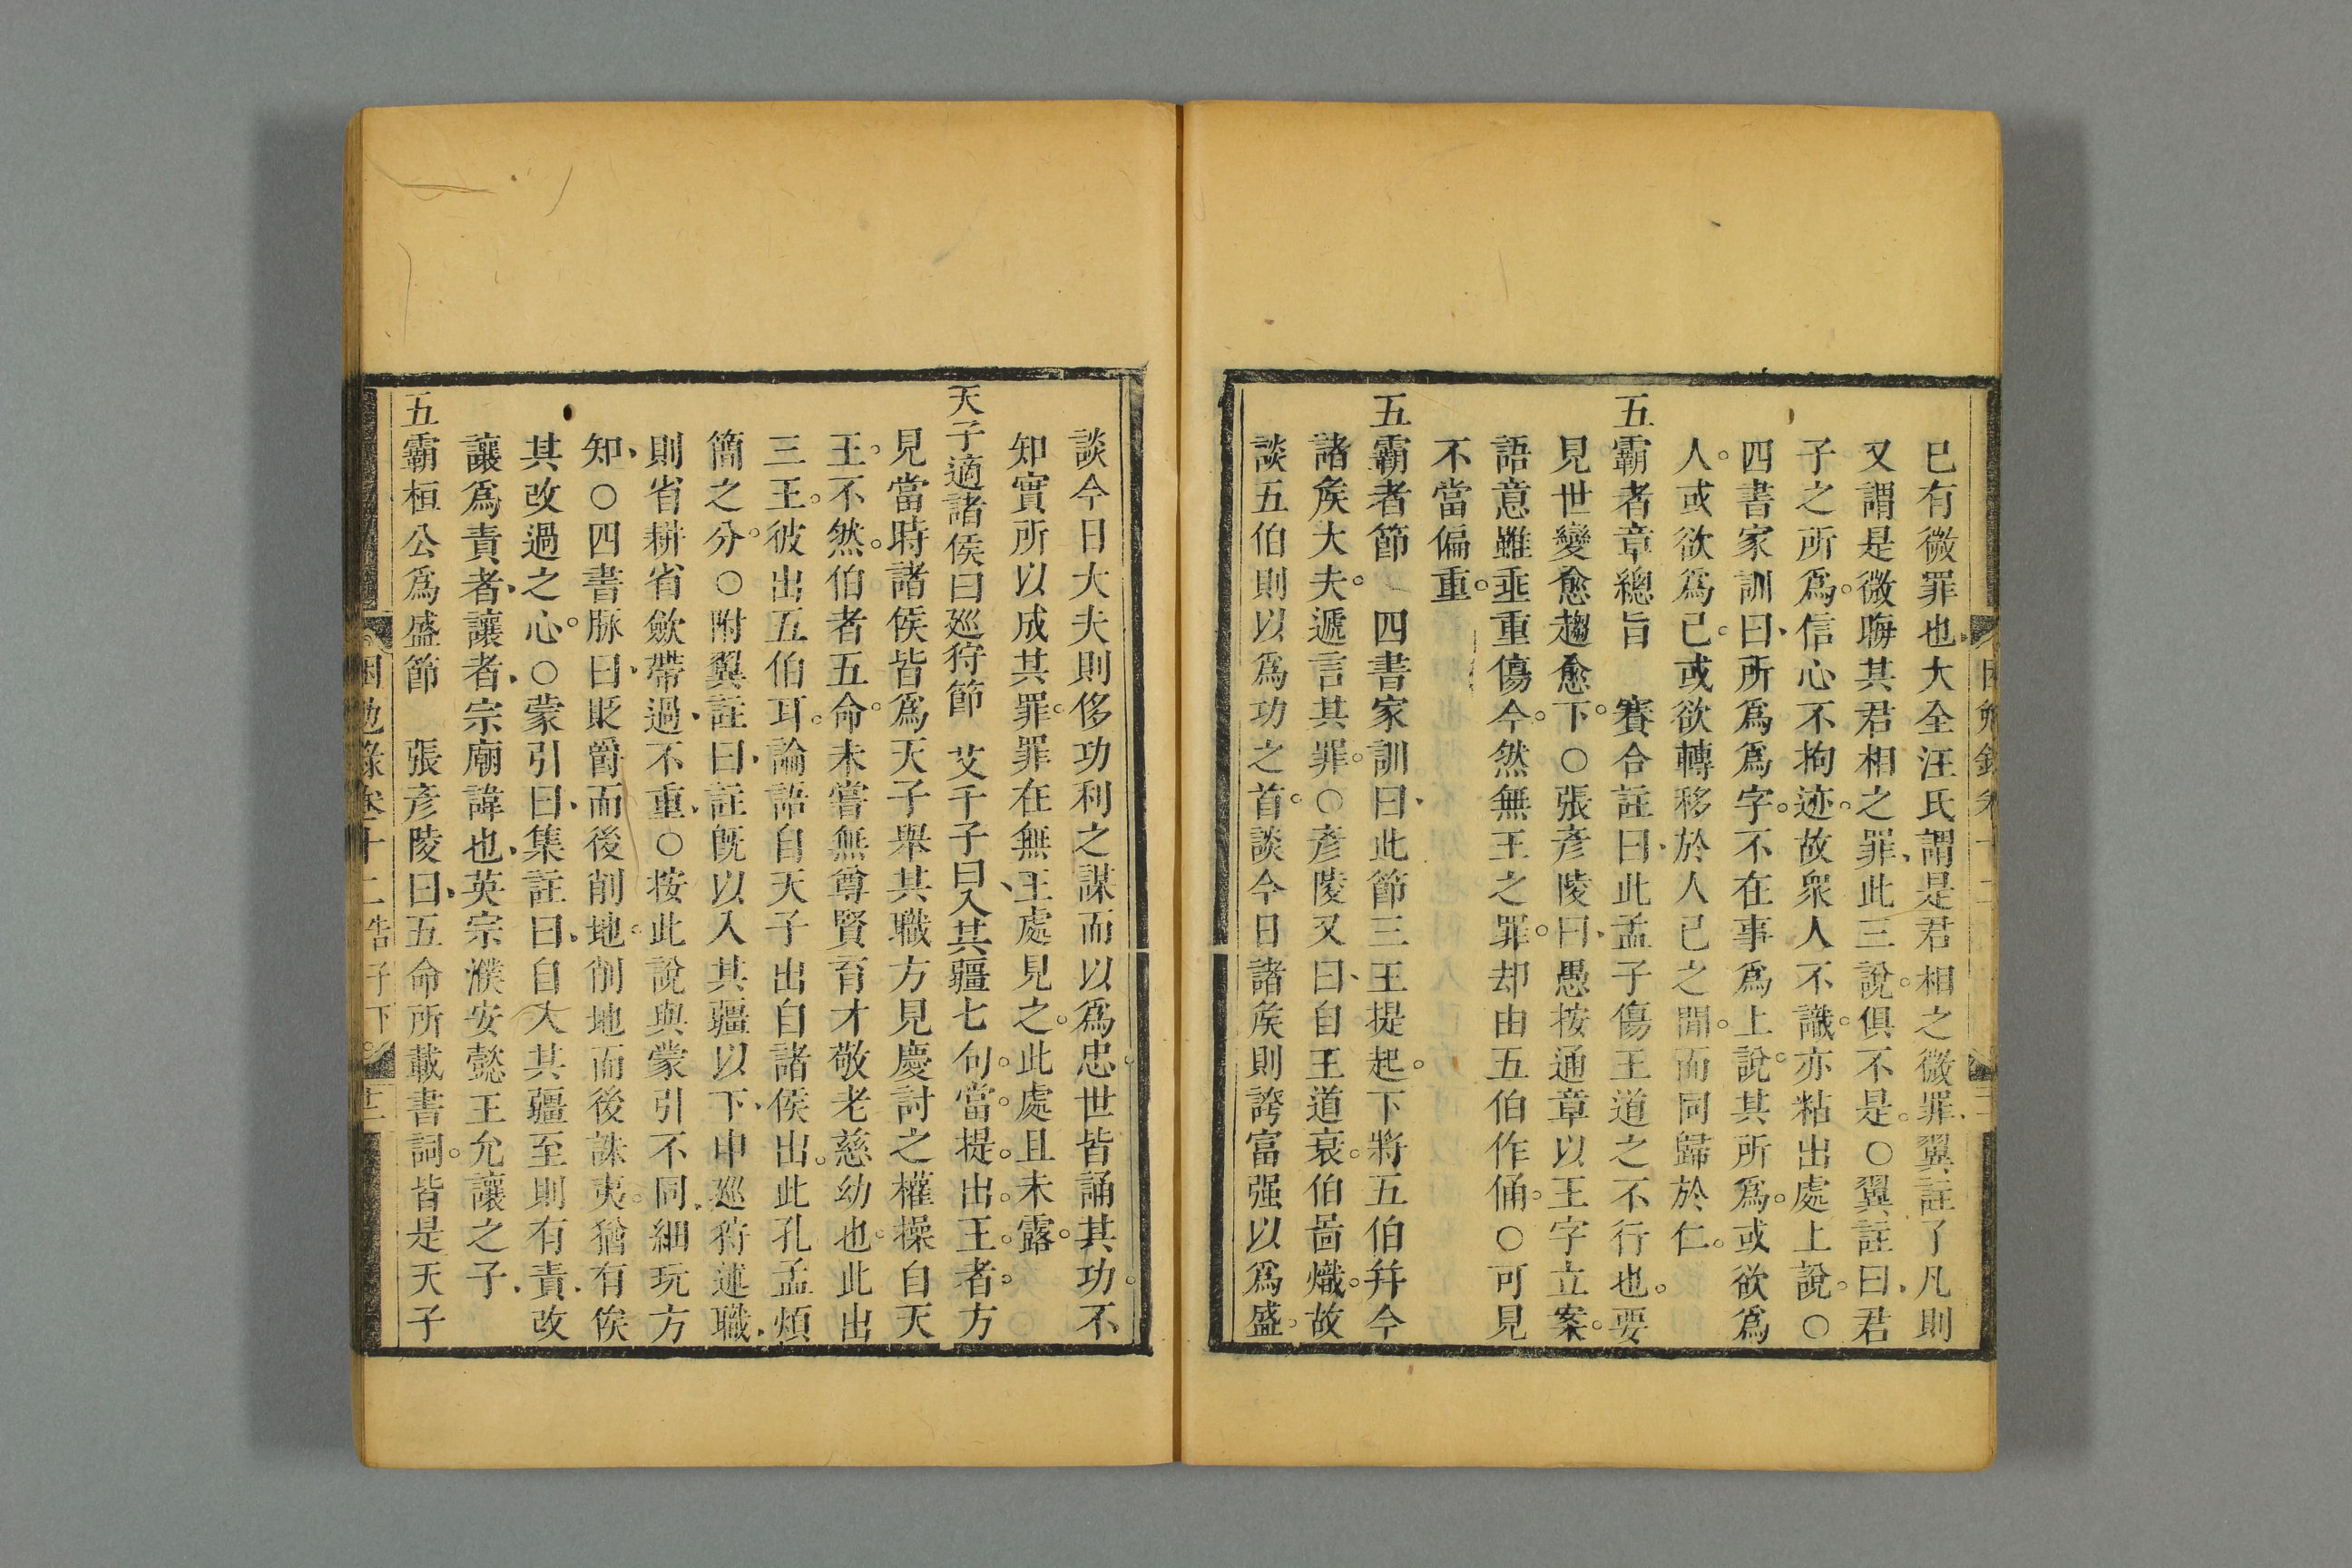 已有微罪也大全汪氏謂是君相之微罪翼註了凡則
又謂是微晦其君相之罪此三說俱不是○翼註曰君
子之所爲信心不拘迹故衆人不識亦粘出處上說○
四書家訓曰所爲爲字不在事爲上說其所爲或欲爲
人或欲爲己或欲轉移於人己之間而同歸於仁
五霸者章總旨 賽合註曰此孟子傷王道之不行也要
見世變愈趨愈下○張彥陵曰愚按通章以王字立案
語意雖亟重傷今然無王之罪却由五伯作俑○可見
不當偏重
五霸者節 四書家訓曰此節三王提起下將五伯幷今
諸矦大夫遞言其罪○彥陵又曰自王道衰伯啚熾故
談五伯則以爲功之首談今日諸矦則誇富强以爲盛
談今日大夫則侈功利之謀而以爲忠世皆誦其功不
知實所以成其罪罪在無王處見之此處且未露
天子適諸侯曰廵狩節 艾千子曰入其疆七句當提出王者方
見當時諸侯皆爲天子舉其職方見慶討之權操自天
王不然伯者五命未嘗無尊賢育才敬老慈幼也此出
三王彼出五伯耳論語自天子出自諸侯出此孔孟煩
簡之分○附翼註曰註旣以入其疆以下申廵狩述職
則省耕省歛帶過不重○按此說與蒙引不同細玩方
知○四書脉曰貶爵而後削地削地而後誅夷猶有俟
其改過之心○蒙引曰集註曰自入其疆至則有責改
讓爲責者讓者宗廟諱也英宗濮安懿王允讓之子
五霸桓公爲盛節 張彥陵曰五命所載書詞皆是天子
困勉錄卷十二告子下 三